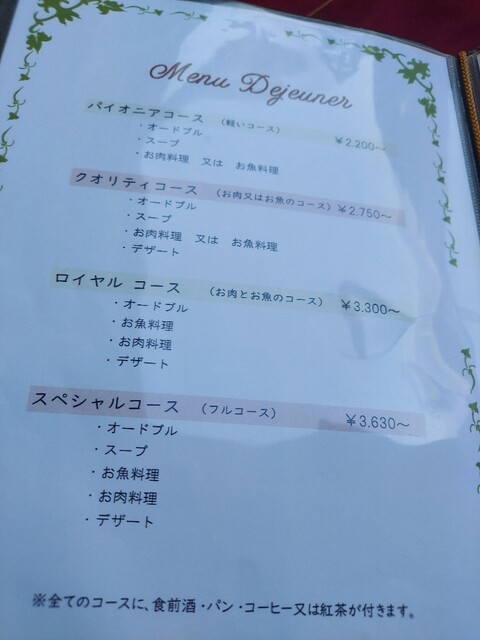 Menu Dejeuner
パイオニアコース （軽いコース） ￥2.200～
・オードブル
・スープ
・お肉料理 又は お魚料理
クオリティコース （お肉又はお魚のコース） ￥2.750～
・オードブル
・スープ
・お肉料理 又は お魚料理
・デザート
ロイヤル コース （お肉とお魚のコース） ￥3.300～
・オードブル
・お魚料理
・お肉料理
・デザート
スペシャルコース （フルコース） ￥3.630～
・オードブル
・スープ
・お魚料理
・お肉料理
・デザート
※全てのコースに、食前酒・パン・コーヒー又は紅茶が付きます。